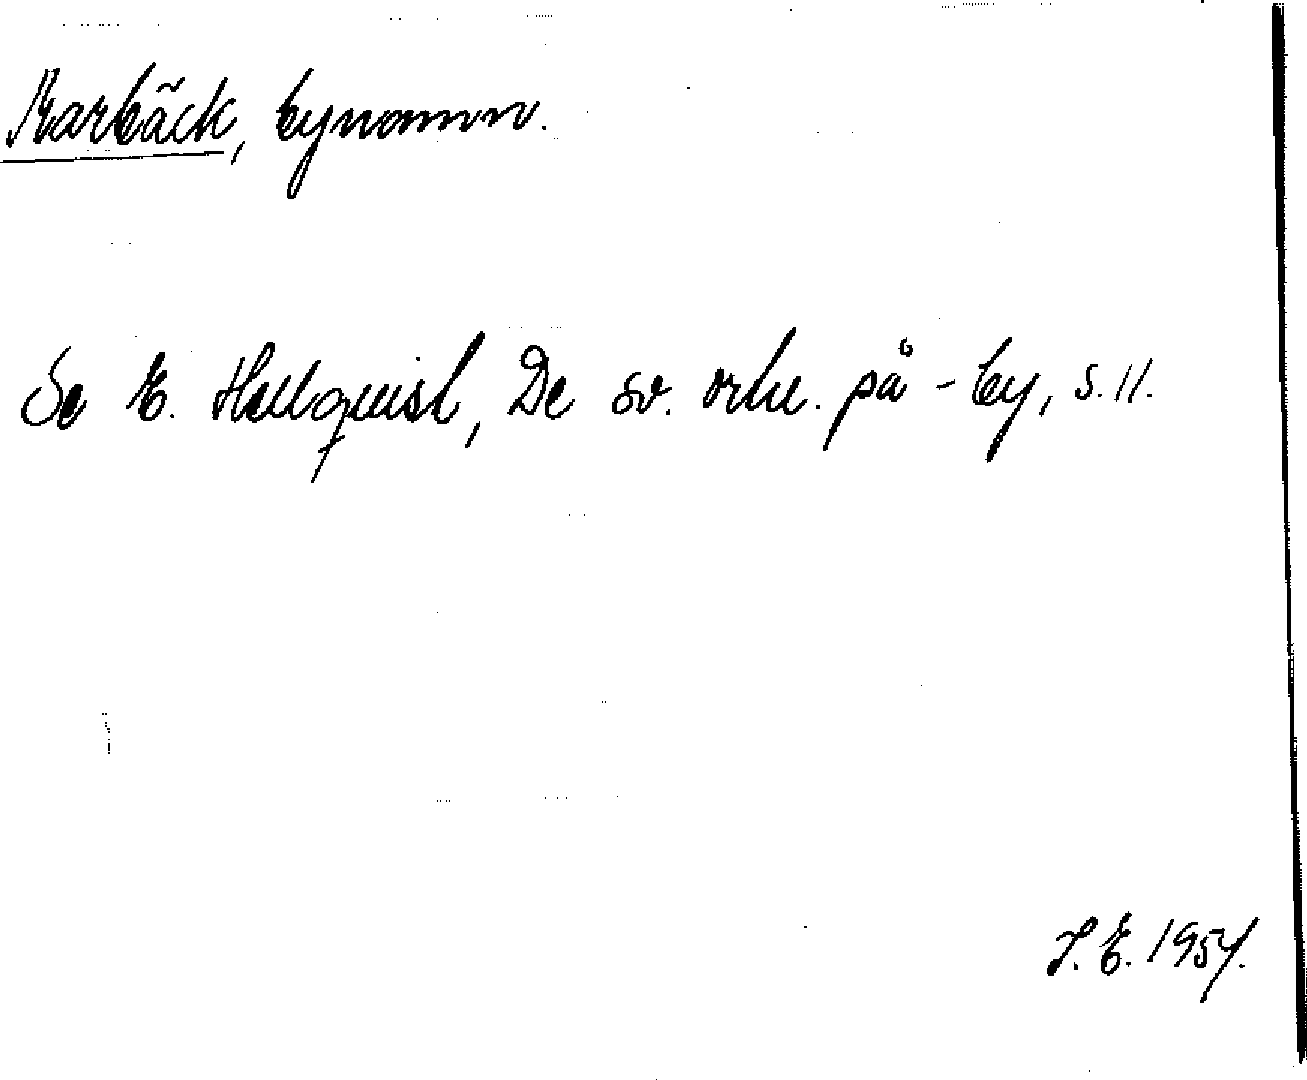 Karbäck, bynamn.
Se E. Hellquist, De sv. ortn. på -by, s. 11.
J. E. 1954.